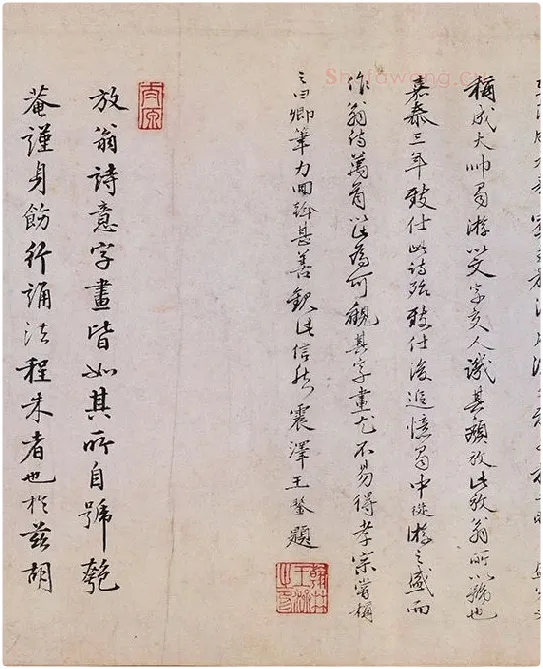 稱成大帥蜀游以文字交人譏其頹放此放翁所以號也
嘉泰三年致仕此詩殆致仕後追憶蜀中從游之盛而
作翁詩萬首以此為可觀其字畫尤不易得孝宗嘗稱
之曰卿筆力回斡甚善觀此信然震澤王鏊題
放翁詩意字畫皆如其所自號匏
菴謹身飭行誦法程朱者也於茲胡